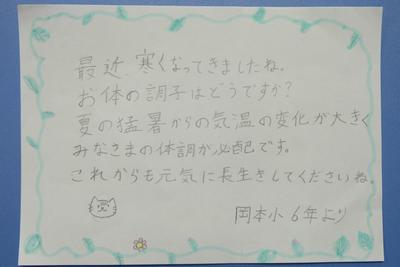 最近、寒くなってきましたね。
お体の調子はどうですか？
夏の猛暑からの気温の変化が大きく
みなさまの体調が心配です。
これからも元気に長生きしてくださいね。
岡本小6年より